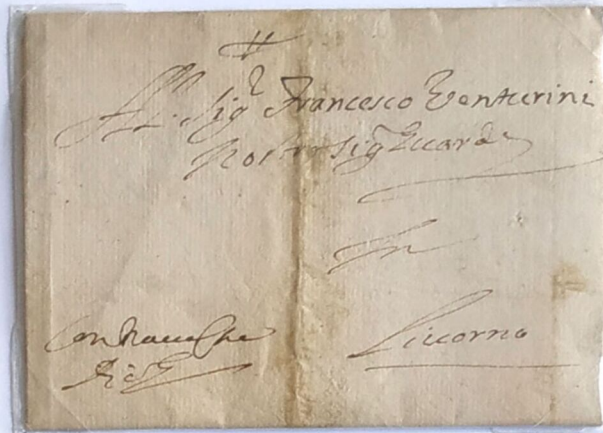 All. Sig.r Francesco Venturini
nostro Sig.re guardi
In
Livorno
Con Nave che